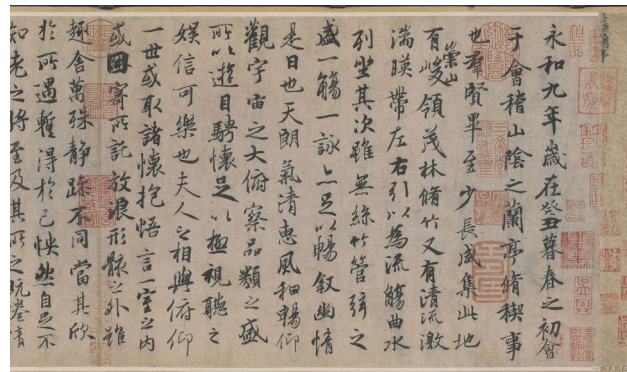 永和九年歲在癸丑暮春之初會
于會稽山陰之蘭亭脩稧事
也羣賢畢至少長咸集此地
有崇山峻領茂林脩竹又有清流激
湍暎帶左右引以為流觴曲水
列坐其次雖無絲竹管弦之
盛一觴一詠亦足以暢叙幽情
是日也天朗氣清惠風和暢仰
觀宇宙之大俯察品類之盛
所以遊目騁懷足以極視聽之
娛信可樂也夫人之相與俯仰
一世或取諸懷抱悟言一室之內
或因寄所託放浪形骸之外雖
趣舍萬殊靜躁不同當其欣
於所遇暫得於己怏然自足不
知老之將至及其所之既惓情